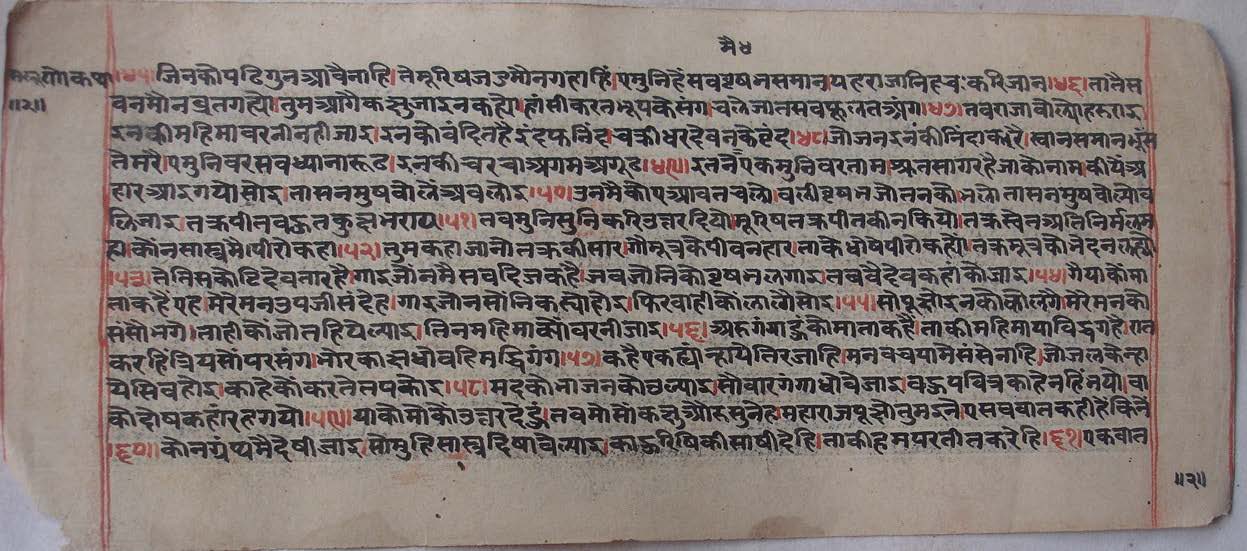 मै ४
।४५। जिनकौ पढि गुन आवै नाहि। ते मूरिष जउ मौन गहाहिं। ए मुनि हैं सब वृषन समान। यह राजा निहचः करि जान।४६। तां तै स
॥२॥ वन मौनव्रत गह्यो। तुम आगै कछु जाइ न कह्यो। हांसी करत भूप के संग। चले जात सब फूलत अंग।४७। तव राजा वोल्यो
इनकी महिमा वरनी नही जाइ। इनको वंदित है इंद फनिंद। चक्री धर देवन के वृंद।४८। जो जन इनकी निंदा करै। स्वान समान
ते मरै। ए मुनिवर सब ध्यानारूढ। इनकी चरचा अगम अगूढ।४९। इतनै एक मुनिवर नाम। श्रुतसागर है जाको नाम। कीयें अ
हार आइ गयो सोइ। ता सनमुष वोले अवलोइ।५०। उनमै को ए आवत चलो। वली वृषभ जोतन कौ भलो। ता सनमुष वोल्यो व
लि जाइ। तक्र पीत वहुत कुक्ष भराय।५१। तव मुनि सुनि करि उत्तर दियो। मूरिष तक्र पीत की न कियो। तक्र स्वेत अति निर्मल म
ह्या कोंन सास्त्र मै पीरो कहा।५२। तुम कहा जानो तक्र की सार। गौमूत्र के पीवनहार। ताके धोषै पीरो कह्यो। तक्र मूत्र को भेद न लह्यो
।५३। तेतिस कोटि देवता रहै। गाइ जोनि मै सव दिज कहै। जव जोनि को वृषभ लगाइ। तव वे देव कहा को जाइ।५४। गैया को मा
ता कहै एह। मेरे मन उपजी संदेह। गाइ जोन सो निकस्यो होइ। फिर वाही को लागो सोइ।५५। सो पूछौ इनको को लगै। मेरे मन को
संसो भगै। ताही को जोतहि पेल्याइ। तिन महिमा क्यो वरनी जाइ।५६। अरु गंगा कौ माता कहै। ताकी महिमा या विद्ध गहै। रात
कर हिं त्रिय सों परसंग। भोर का छ धोवहि मद्धि गंग।५७। कहै एक ह्यां न्हाये तिर जाहि। मन वच या मै संसे नाहि। जो जल के न्हा
ये सिव होइ। काहे को करते तप कोइ।५८। मद को भाजन कोउ ल्याइ। सौ वार गंगा धोवे जाइ। वहु पवित्र काहे नहिं भयो। वा
को दोष कहां रह गयो।५९। याको मोको उत्तर देहु। तव मो सों कछु और सुनेह। महाराज पूछो तुम इनै। ए सव वात कही हैं किनै
।६०। कौन ग्रंथ मै देषी जाइ। सो मुहि सास्त्र दिषावै ल्याइ। काहु रिषि की साषी देहि। ताकी हम परतीत करेहि।६१। एक वात
॥२॥